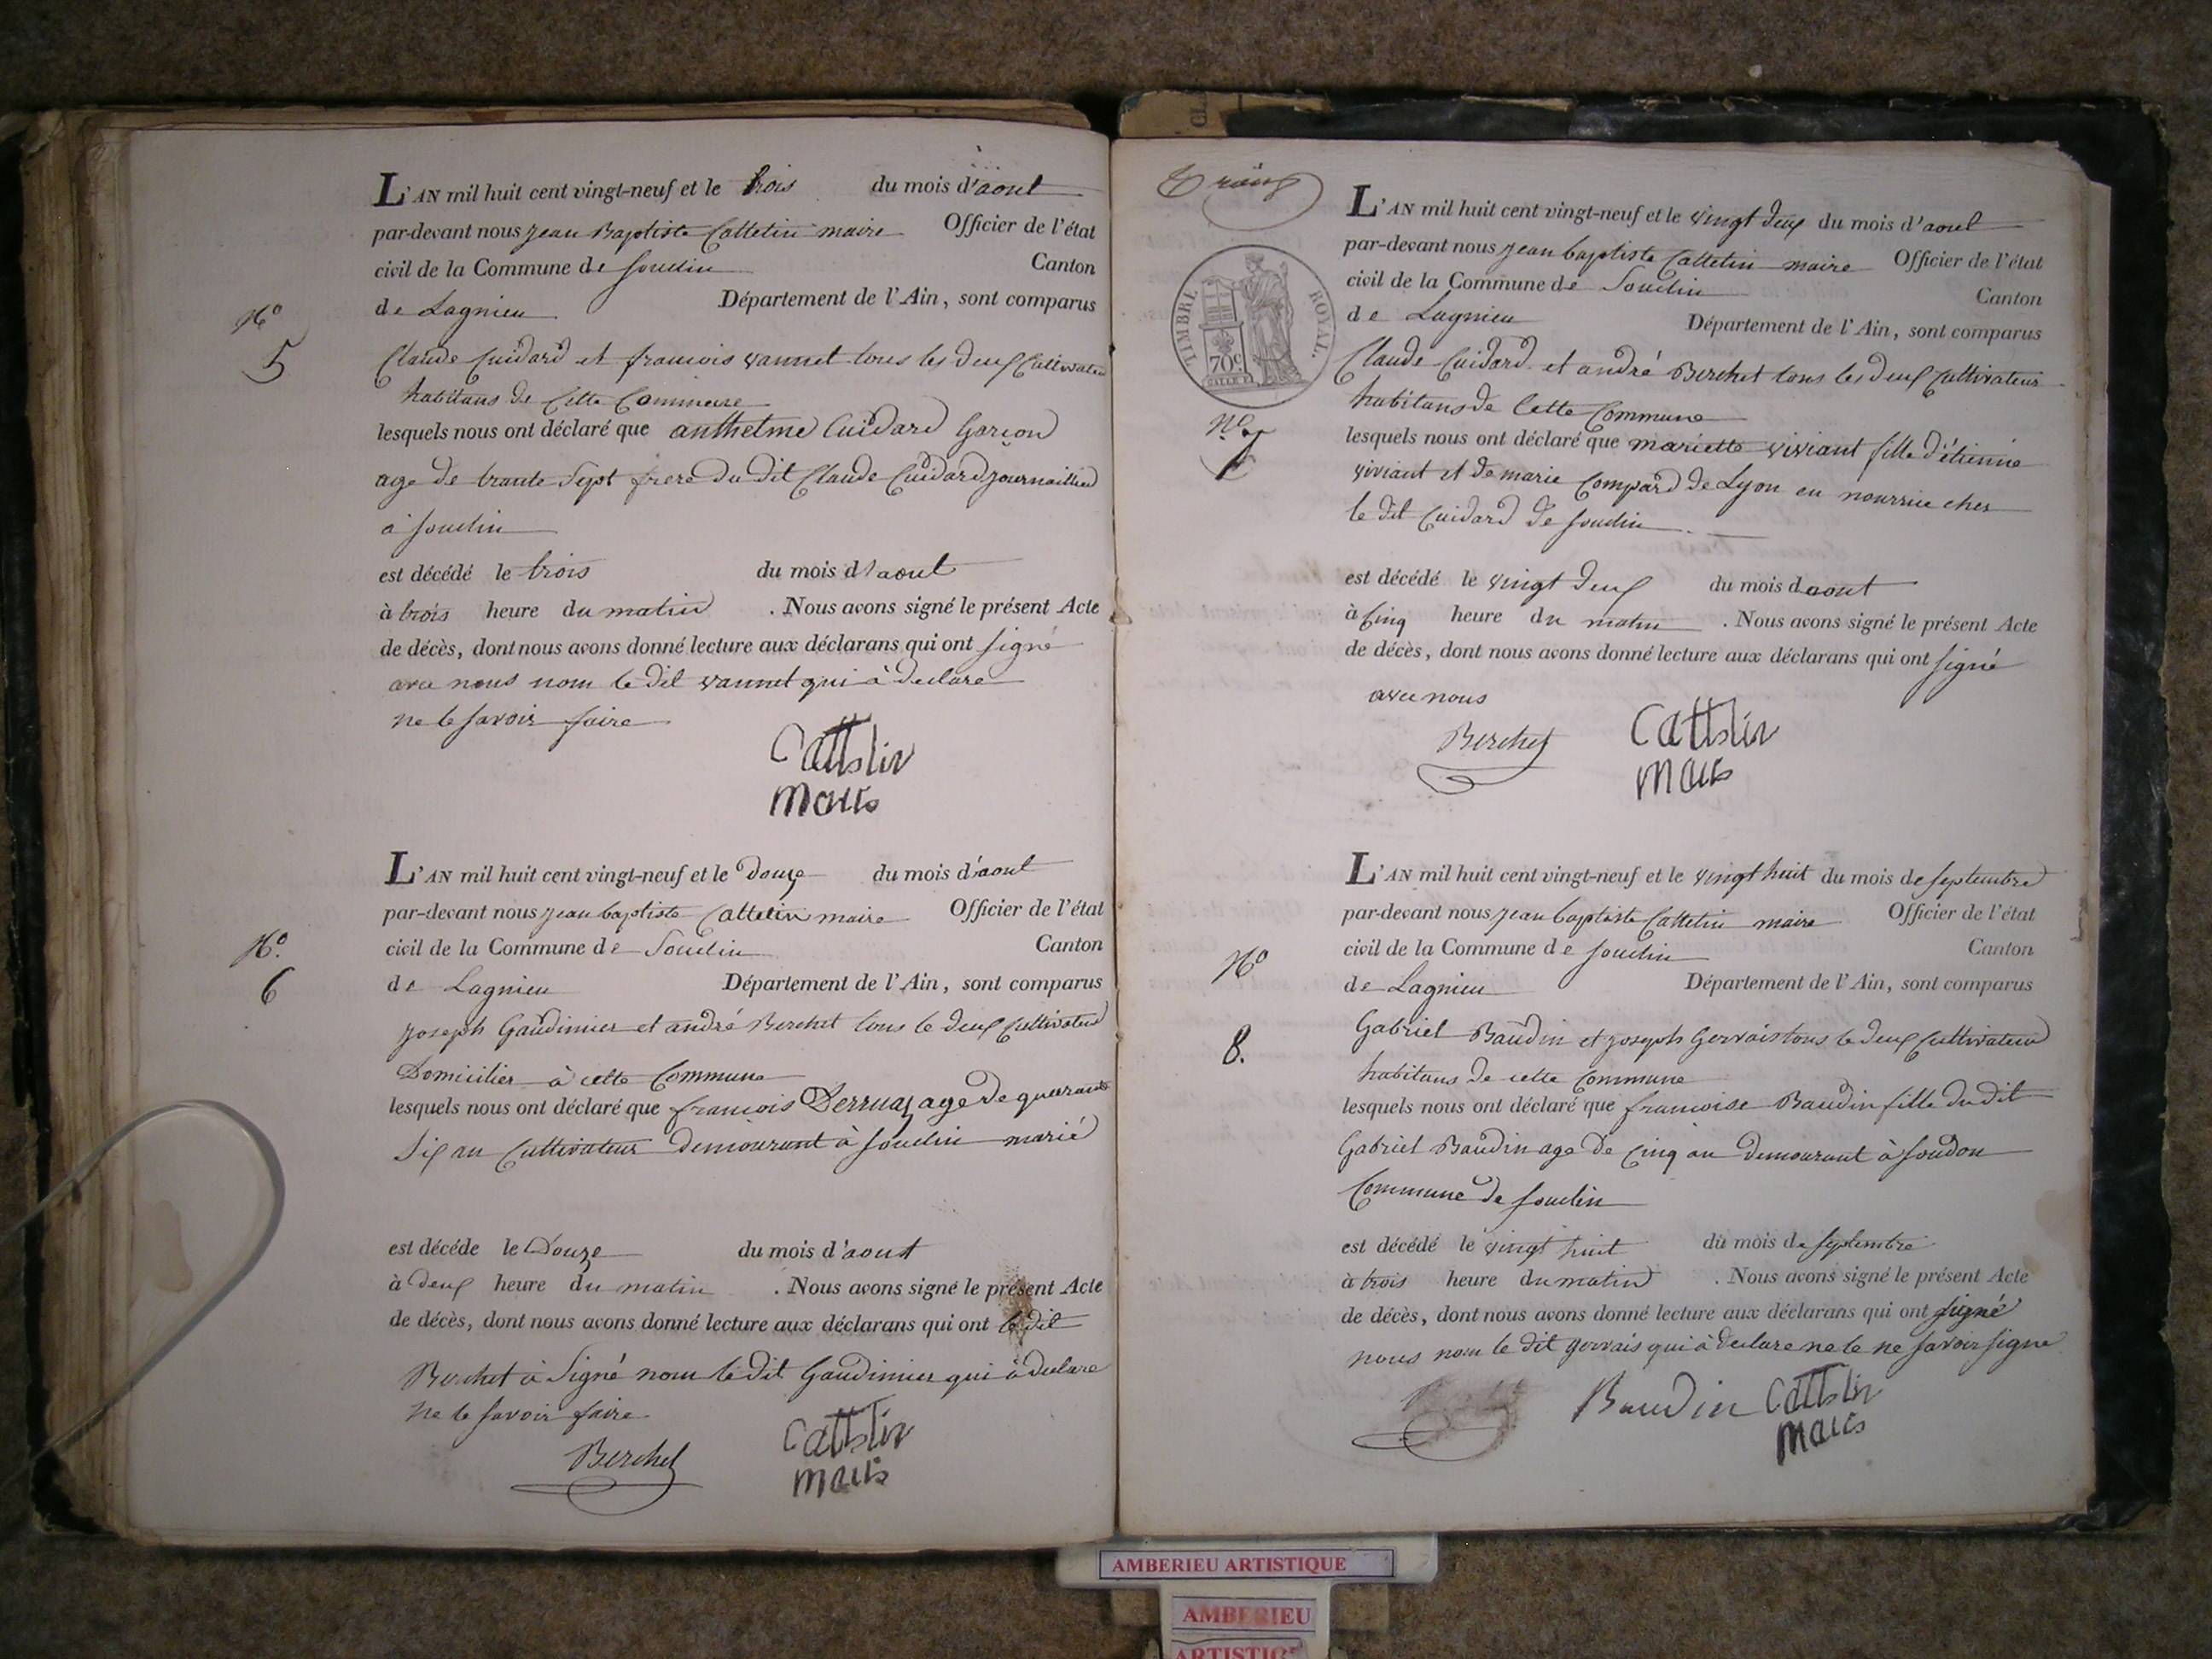 L'AN mil huit cent vingt-neuf et le trois du mois d'aout
par-devant nous Jean Baptiste Cattelin maire Officier de l'état
civil de la Commune de Souclin Canton
de Lagnieu Département de l'Ain, sont comparus
No
5
Claude Cuidard et francois vannet tous les deux Cultivateu
habitans de Cette Commune
lesquels nous ont déclaré que anthelme Cuidard Garçon
age de trante Sept frere du dit Claude Cuidard journaillied
à Souclin
est décédé le trois du mois d'aout
à trois heure du matin . Nous avons signé le présent Acte
de décès, dont nous avons donné lecture aux déclarans qui ont signé
avec nous nom le dit vannet qui à declare
ne le savoir faire
Cattelin
maire
L'AN mil huit cent vingt-neuf et le douze du mois d'aout
par-devant nous jean baptiste Cattelin maire Officier de l'état
No.
6
civil de la Commune de Souclin Canton
de Lagnieu Département de l'Ain, sont comparus
joseph Gaudinier et andré Berchet tous le deux Cultivateur
Domicilier à cette Commune
lesquels nous ont déclaré que francois Derruaz age de quarante
Six an Cultivateur demourant à Souclin marié
est décéde le Douze du mois d'aout
à deux heure du matin . Nous avons signé le présent Acte
de décès, dont nous avons donné lecture aux déclarans qui ont le dit
Berchet à Signé nom le dit Gaudinier qui à declare
ne le savoir faire
Berchet
Cattelin
maire
L'AN mil huit cent vingt-neuf et le vingt deux du mois d'aout
par-devant nous jean baptiste Cattelin maire Officier de l'état
civil de la Commune de Souclin Canton
de Lagnieu Département de l'Ain, sont comparus
TIMBRE ROYAL.
70c
No
7
Claude Cuidard et andré Berchet tous les deux Cultivateur
habitans de Cette Commune
lesquels nous ont déclaré que mariette viviant fille d'étienne
viviant et de marie Compard de Lyon en nourrice cher
le dit Cuidard de Souclin
est décédé le vingt deux du mois d aout
à Cinq heure du matin . Nous avons signé le présent Acte
de décès, dont nous avons donné lecture aux déclarans qui ont signé
avec nous
Berchet
Cattelin
maire
L'AN mil huit cent vingt-neuf et le vingt huit du mois de septembre
par-devant nous jean baptiste Cattelin maire Officier de l'état
civil de la Commune de Souclin Canton
de Lagnieu Département de l'Ain, sont comparus
No
8.
Gabriel Baudin et joseph Gervais tous le deux Cultivateur
habitans de cette Commune
lesquels nous ont déclaré que francoise Baudin fille du dit
Gabriel Baudin age de Cinq an demourant à Soudon
Commune de Souclin
est décédé le vingt huit du mois de septembre
à trois heure du matin . Nous avons signé le présent Acte
de décès, dont nous avons donné lecture aux déclarans qui ont signé
nous nom le dit gervais qui à declare ne le ne savoir signe
Baudin
Cattelin
maire
AMBERIEU ARTISTIQUE
AMBERIEU
ARTISTIQ